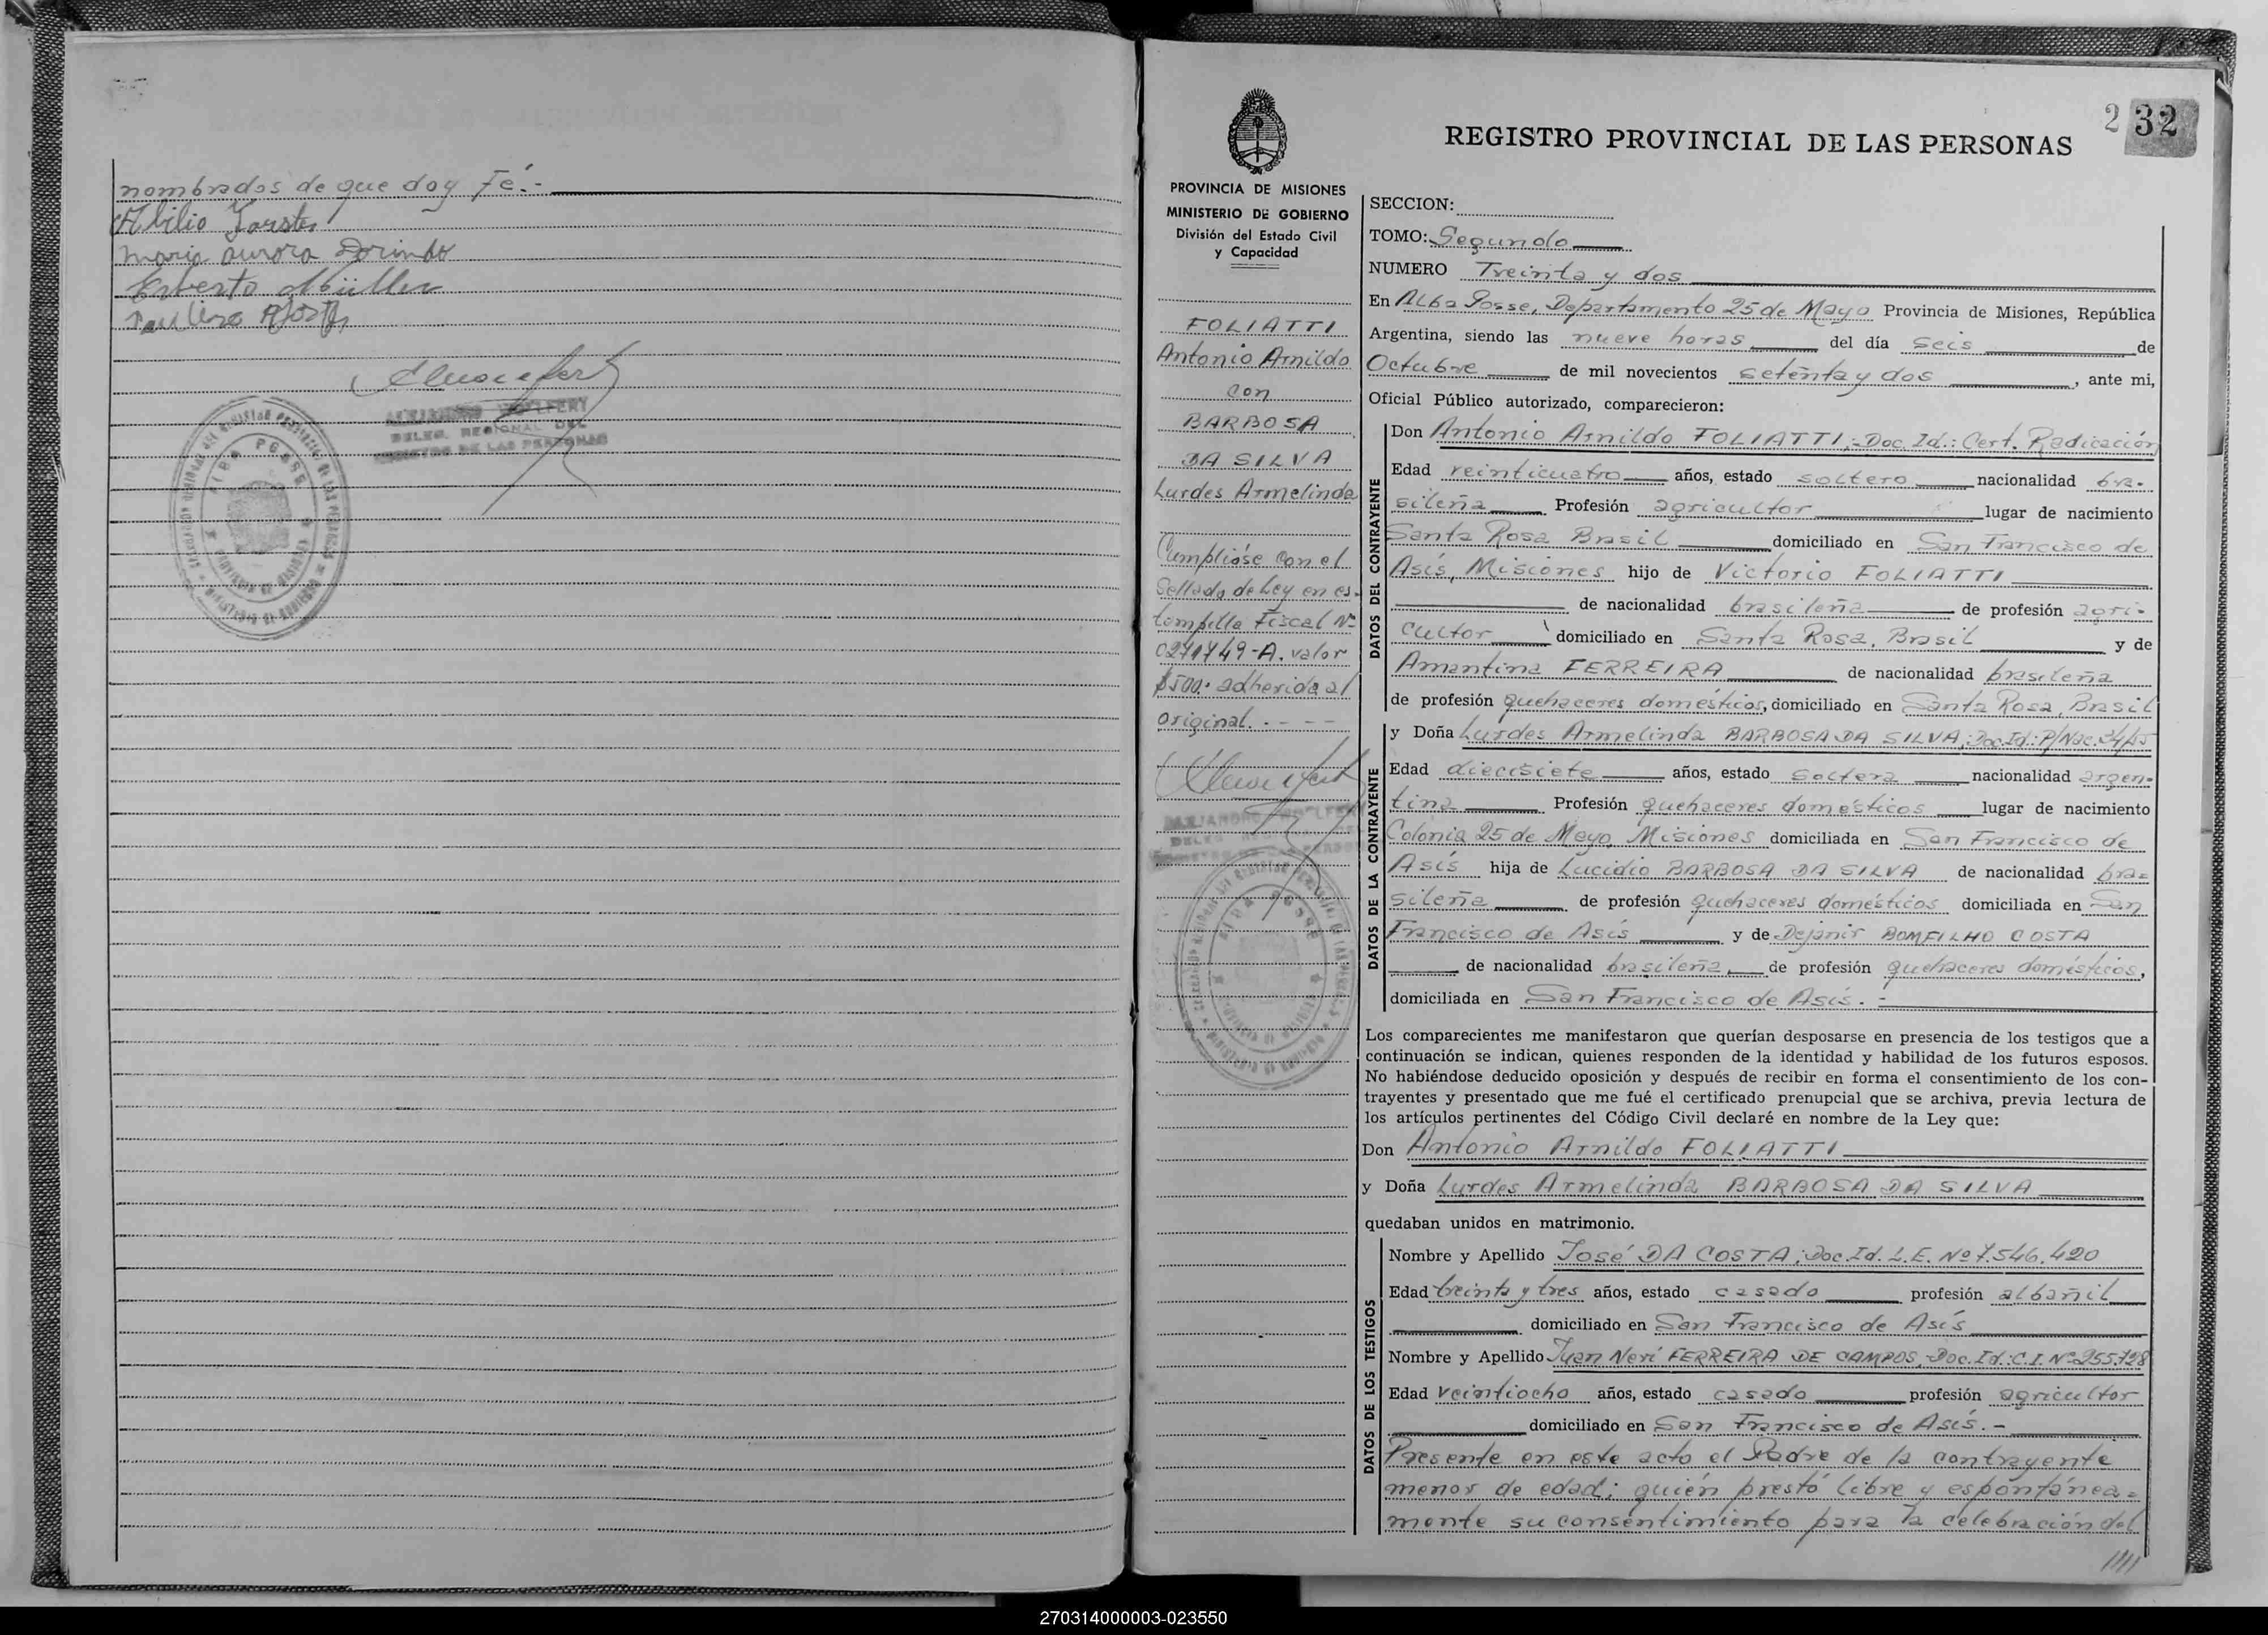 nombrados de que doy Fé.-
Abilio
Maria Aurora Dorindo
Erberto Müller
DELEG. REGIONAL DEL
REGISTRO DE LAS PERSONAS
ALBA POSSE
2 32
REGISTRO PROVINCIAL DE LAS PERSONAS
PROVINCIA DE MISIONES
MINISTERIO DE GOBIERNO
División del Estado Civil
y Capacidad
FOLIATTI
Antonio Arnildo
con
BARBOSA
DA SILVA
Lurdes Armelinda
Cumplióse con el
Sellado de Ley en es-
tampilla Fiscal Nº
0271749-A. valor
$500.- adherida al
original. - - - -
ALBA POSSE
SECCION:
TOMO: Segundo
NUMERO Treinta y dos
En Alba Posse, Departamento 25 de Mayo Provincia de Misiones, República
Argentina, siendo las nueve horas del día seis de
Octubre de mil novecientos setenta y dos, ante mi,
Oficial Público autorizado, comparecieron:
DATOS DEL CONTRAYENTE
Don Antonio Arnildo FOLIATTI,-Doc. Id.: Cert. Radicación
Edad veinticuatro años, estado soltero nacionalidad bra-
sileña Profesión agricultor lugar de nacimiento
Santa Rosa Brasil domiciliado en San Francisco de
Asís, Misiones hijo de Victorio FOLIATTI
de nacionalidad brasileña de profesión agri-
cultor domiciliado en Santa Rosa, Brasil y de
Amantina FERREIRA de nacionalidad brasileña
de profesión quehaceres domésticos, domiciliado en Santa Rosa, Brasil
DATOS DE LA CONTRAYENTE
y Doña Lurdes Armelinda BARBOSA DA SILVA, Doc.Id.: P/Nac.
Edad diecisiete años, estado soltera nacionalidad argen-
tina Profesión quehaceres domésticos lugar de nacimiento
Colonia 25 de Mayo, Misiones domiciliada en San Francisco de
Asís hija de Lucidio BARBOSA DA SILVA de nacionalidad bra-
sileña de profesión quehaceres domésticos domiciliada en San
Francisco de Asís y de Dejanir BOMFILHO COSTA
de nacionalidad brasileña de profesión quehaceres domésticos,
domiciliada en San Francisco de Asís.-
Los comparecientes me manifestaron que querían desposarse en presencia de los testigos que a
continuación se indican, quienes responden de la identidad y habilidad de los futuros esposos.
No habiéndose deducido oposición y después de recibir en forma el consentimiento de los con-
trayentes y presentado que me fué el certificado prenupcial que se archiva, previa lectura de
los artículos pertinentes del Código Civil declaré en nombre de la Ley que:
Don Antonio Arnildo FOLIATTI
y Doña Lurdes Armelinda BARBOSA DA SILVA
quedaban unidos en matrimonio.
DATOS DE LOS TESTIGOS
Nombre y Apellido José DA COSTA, Doc.Id. L.E. Nº 7.546.420
Edad treinta y tres años, estado casado profesión albañil
domiciliado en San Francisco de Asís
Nombre y Apellido Juan Neri FERREIRA DE CAMPOS, Doc.Id.: C.I. Nº 255.728
Edad veintiocho años, estado casado profesión agricultor
domiciliado en San Francisco de Asís.-
Presente en este acto el Padre de la contrayente
menor de edad; quién prestó libre y espontánea-
mente su consentimiento para la celebración del
////
270314000003-023550